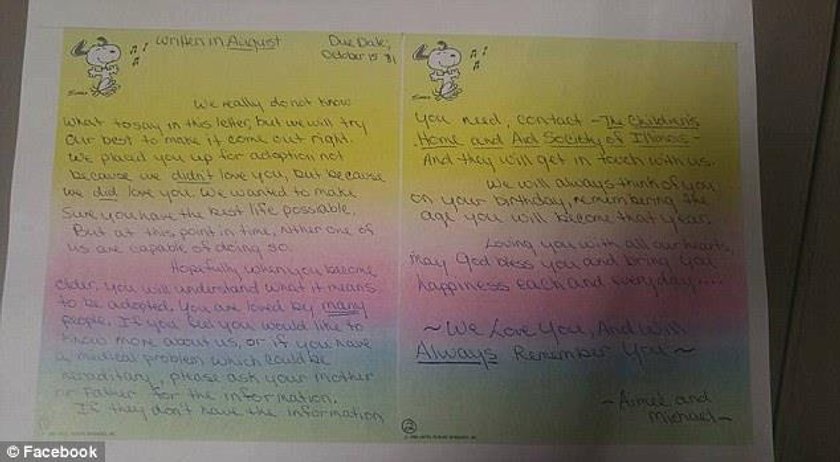 written in August
Due Date,
October 15
We really do not know
what to say in this letter, but we will try
our best to make it come out right.
We placed you up for adoption not
because we didn't love you, but because
we did love you. We wanted to make
sure you have the best life possiable.
But at this point in time, nither one of
us are capable of doing so.
Hopefully when you become
older, you will understand what it means
to be adopted. You are loved by many
people. If you feel you would like to
know more about us, or if you have
a medical problem which could be
hereditary, please ask your mother
or Father for the information.
If they don't have the information
you need, contact - The Children's
Home and Aid Society of Illinois -
And they will get in touch with us.
We will always think of you
on your birthday, remembering the
age you will become that year.
Loving you with all our hearts,
may God bless you and bring you
happiness each and everyday....
~We Love You, And Will
Always Remember You~
~Aimee and
Michael~
© Facebook